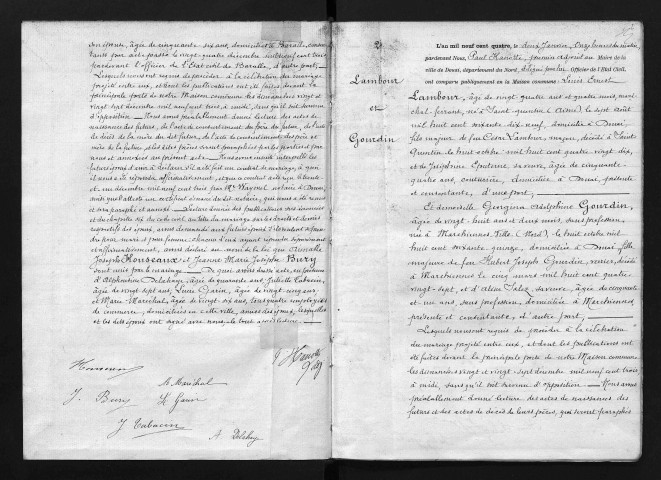 son épouse, âgée de cinquante-six ans, domiciliés à Baralle, consen-
tants par acte passé le vingt-quatre décembre mil neuf cent trois
pardevant l'officier de l'État civil de Baralle, d'autre part;
Lesquels nous ont requis de procéder à la célébration du mariage
projeté entre eux, et dont les publications ont été faites devant la
principale porte de notre Maison commune les dimanches vingt et
vingt-sept décembre mil neuf cent trois à midi, sans qu'il soit survenu
d'opposition. — Nous avons préalablement donné lecture des actes de
naissance des futurs, de l'acte de consentement des père
et mère de la future,
pour nous et annexées au présent acte. — Nous avons ensuite interpellé les
futurs époux d'avoir à déclarer s'il a été fait un contrat de mariage, à quoi
ils nous ont répondu affirmativement, et que ce contrat a été reçu le trente
et un décembre mil neuf cent trois par Me Wagon notaire à Douai,
Joseph Houseaux et Jeanne Marie Josèphe Bury
sont unis par le mariage. — De quoi avons dressé acte, en présence
d'Alexandrine Delahaye, âgée de quarante ans, Juliette Tabacun,
âgée de vingt-sept ans, Lucie Garin, âgée de vingt-cinq ans
et Marie Maréchal, âgée de vingt-six ans, tous quatre employées
de commerce, domiciliées en cette ville, amies des époux, lesquelles
et les dits époux ont signé avec nous, le tout après lecture.
Houseaux
M. Maréchal
J. Bury
L. Garin
J. Tabacun
A. Delahaye
P. Hanotte
2
Lambour
et
Gourdin
L'an mil neuf cent quatre, le deux Janvier, onze heures du matin,
pardevant Nous, Paul Hanotte, premier adjoint au Maire de la
ville de Douai, département du Nord, délégué pour les fonctions d'Officier de l'État Civil,
ont comparu publiquement en la Maison commune: Louis Ernest
Lambour, âgé de vingt-quatre ans et quatre mois, maré-
chal-ferrant, né à Saint-Quentin (Aisne) le sept août
mil huit cent soixante-dix-neuf, domicilié à Douai,
fils majeur de feu César Lambour, décédé à Saint-
Quentin le huit octobre mil huit cent quatre-vingt-dix,
et de Joséphine, sa veuve, âgée de cinquante-
quatre ans, couturière, domiciliée à Douai, présente
et consentante, d'une part,
Et demoiselle Georgina Adolphine Gourdin,
âgée de vingt-huit ans et deux mois, sans profession,
née à Marchiennes, Ville (Nord), le huit octobre mil
huit cent soixante-quinze, domiciliée à Douai, fille
majeure de feu Hubert Joseph Gourdin, rentier, décédé
à Marchiennes le cinq mars mil huit cent quatre
vingt-sept, et d'Alexine Talez, sa veuve, âgée de cinquante
et un ans, sans profession, domiciliée à Marchiennes,
présente et consentante, d'autre part,
Lesquels nous ont requis de procéder à la célébration
du mariage projeté entre eux, et dont les publications ont
été faites devant la principale porte de notre Maison commune
les dimanches vingt et vingt-sept décembre mil neuf cent trois
à midi, sans qu'il soit survenu d'opposition. — Nous avons
préalablement donné lecture des actes de naissance des
futurs et des actes de décès de leurs pères, qui seront paraphés